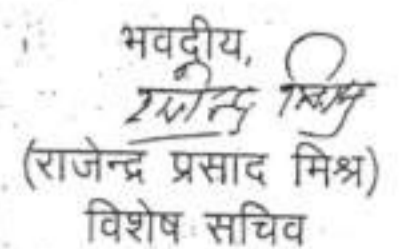 भवदीय,
राजेन्द्र मिश्र
(राजेन्द्र प्रसाद मिश्र)
विशेष सचिव